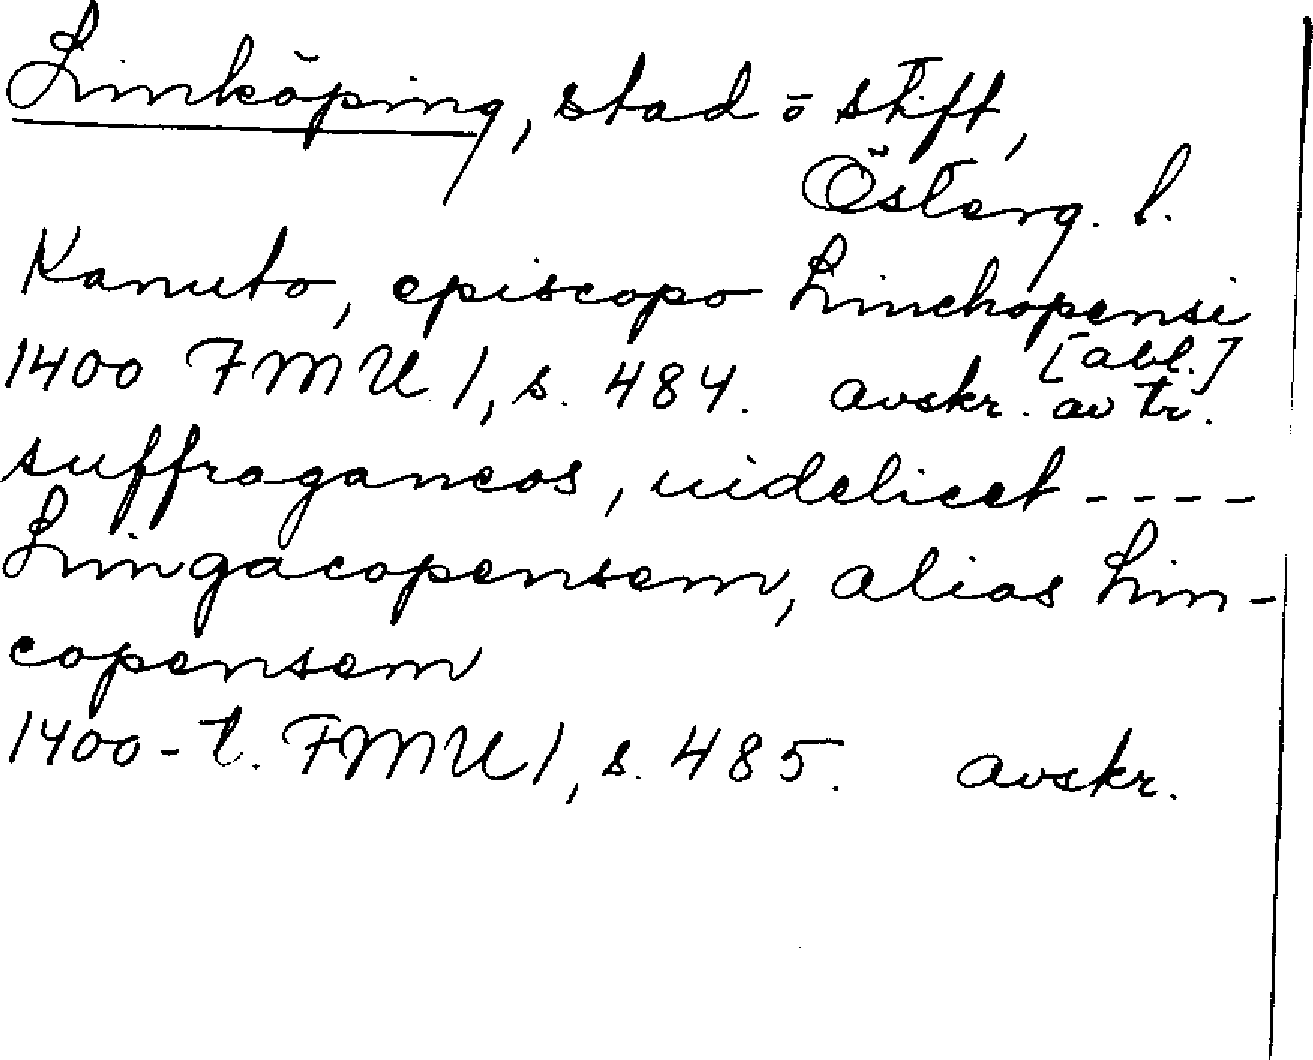 Linköping, stad o stift,
Österg. l.
Kanuto, episcopo Linchopensi
[abl.]
1400 FMU 1, s. 484. avskr. av tr.
suffraganeos, uidelicet ----
Lingacopensem, alias Lin-
copensem
1400-t. FMU 1, s. 485. avskr.